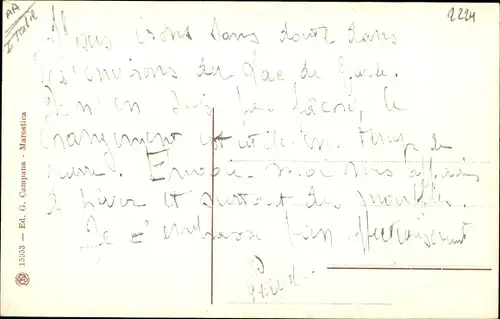 AA
Italie
2224
Nous irons sans doute dans
les environs du Lac de Garde.
Je n'en suis pas fâché, le
changement est utile en temps de
guerre. Envoie moi mes affaires
d'hiver et surtout des moufles.
Je t'embrasse bien affectueusement
15053 — Ed. G. Campana - Marostica